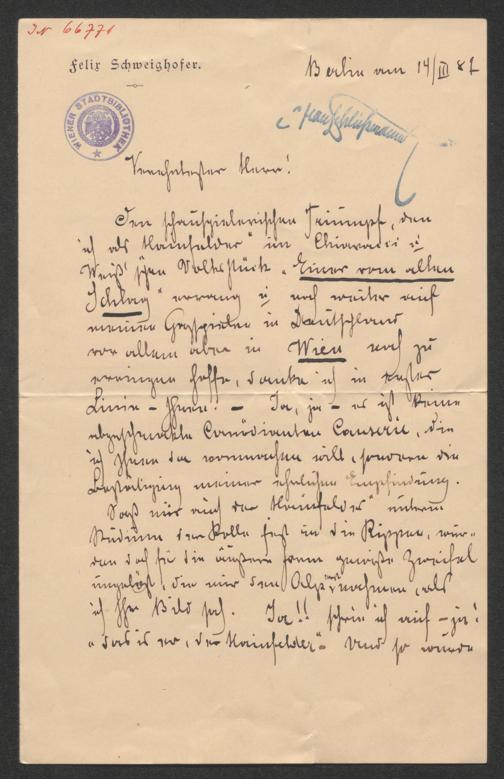 JN 66771
Felix Schweighofer.
Berlin am 14/III 87
WIENER STADTBIBLIOTHEK
"Hans Schließmann"
Verehrtester Herr!
Den schauspielerischen Triumpf, den
ich als "Hainfelder" im Chiavacci u
Weiß'schen Volksstück "Einer vom alten
Schlag" errang u noch weiter auf
meinen Gastspielen in Deutschland
vor allem aber in Wien noch zu
erringen hoffe, danke ich in erster
Linie – Ihnen! – Ja, ja – es ist keine
abgeschmackte Comödianten Causerie, die
ich Ihnen da vormachen will, sondern die
Bestätigung meiner ehrlichen Empfindung.
Saß mir auch der "Hainfelder" unterm
Studium der Rolle fest in die Rippen, wur-
den doch für die äußere Form gewisse Zweifel
ungelöst, die mir den Alp nahmen, als
ich Ihr Bild sah. Ja!! schrie ich auf – ja!
"das is er, der Hainfelder". Und so wurde